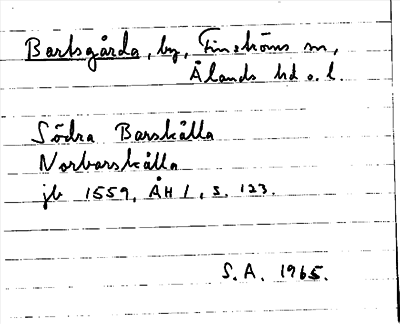 Bartsgårda, by, Finströms sn,
Ålands hd o. l.
Södra Barskålla
Norbarskålla
jb 1559, ÅH 1, s. 123.
S. A. 1965.